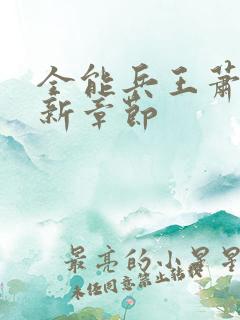 全能兵王萧
新章節
最亮的小星星
未经同意禁止转载